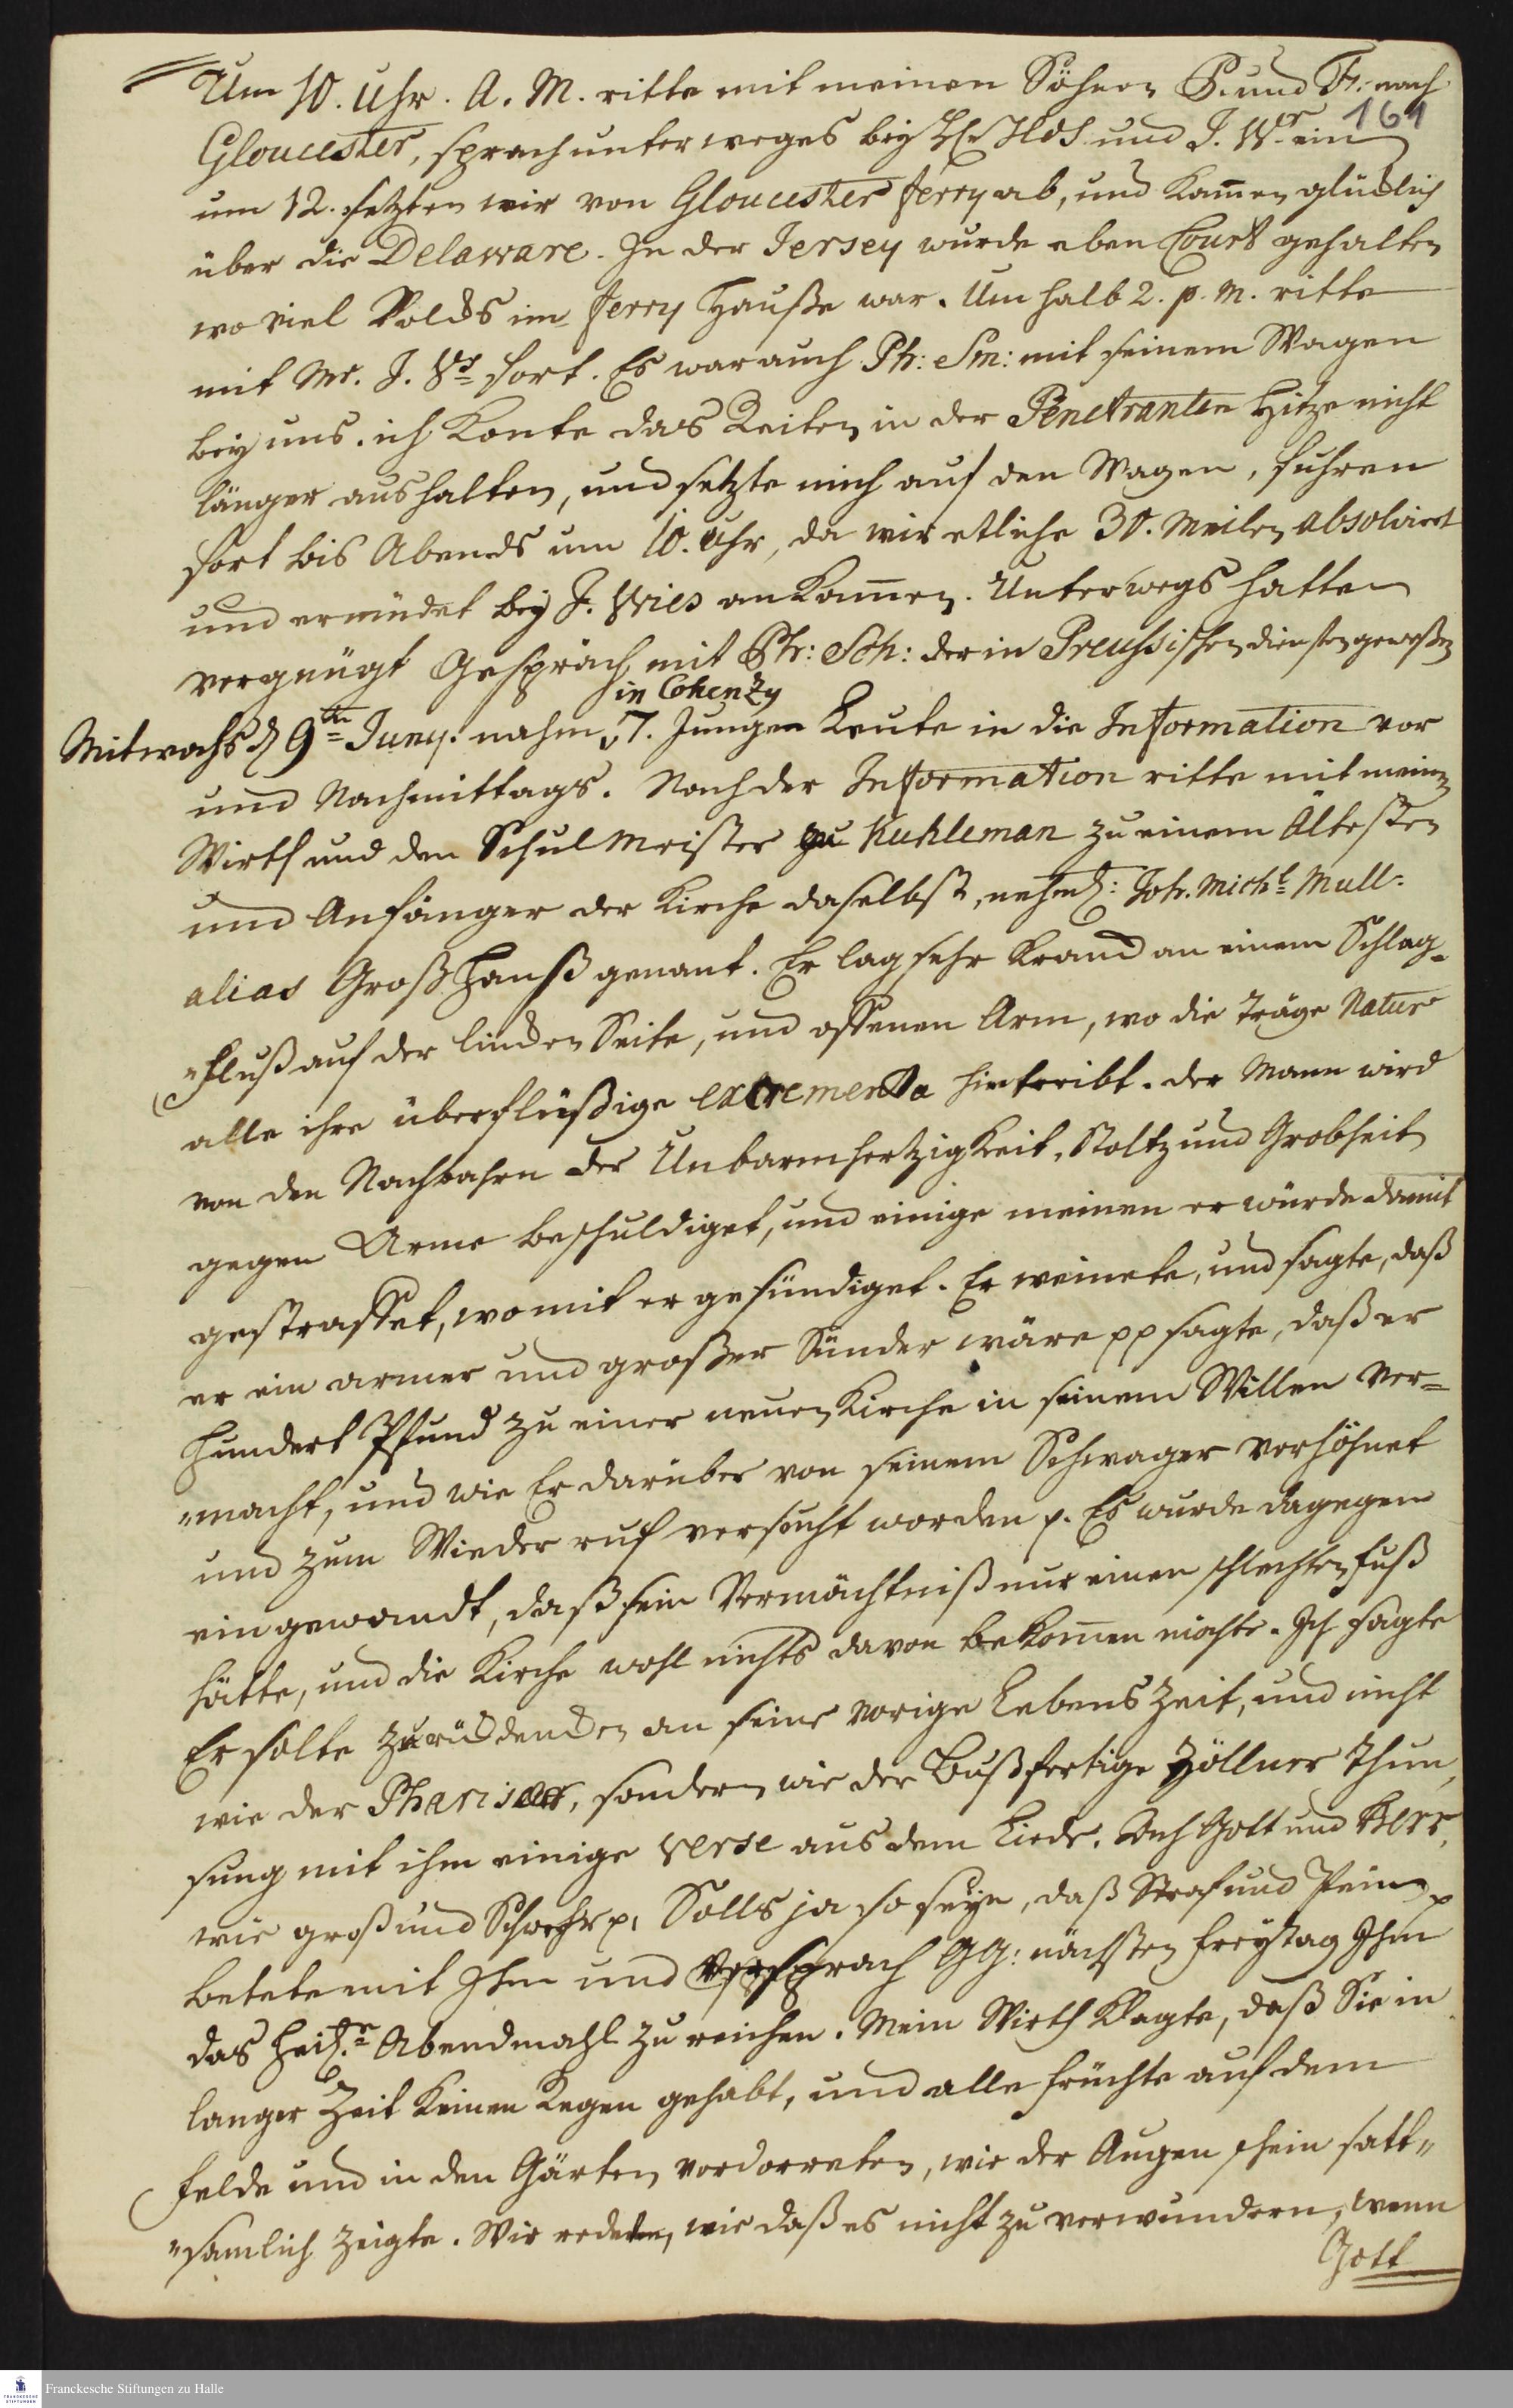 Um 10. Uhr. A. M. ritte mit meinen Söhnen P. und Fr: nach
161
Gloucester, sprach unterweges bey und J. Wr ein
um 12. setzten wir von Gloucester ferry ab, und kam̄en glücklich
über die Delaware. In der Jersey wurde eben Court gehalten
wo viel Volcks im ferry Hauße war. Um halb 2. p. m. ritte
mit Mr. J. fort. Es war auch Ph: Sm: mit seinem Wagen
bey uns. ich konte das Reiten in der Penetranten Hitze nicht
länger aushalten, und setzte mich auf den Wagen, fuhren
fort bis Abends um 10. Uhr, da wir etliche 30. Meilen absolvirt
und ermüdet bey J. Wies ankam̄en. Unterwegs hatten
vergnügt Gespräch mit Ph: Sch: der in Preussischen diensten gewesen
in Cohenzy
Mitwochs d 9ten Juny. nahm 7. Junge Leute in die Information vor
und Nachmittags. Nach der Information ritte mit meinem
Wirth und den Schulmeister zu Kuhleman zu einem Ältesten
und Anfänger der Kirche daselbst, nehml: Joh. Michl Mull:
alias Großhanß genant. Er lag sehr kranck an einem Schlag-
"fluß auf der lincken Seite, und offenen Arm, wo die träge Natur
alle ihre überflüßige excrementa hintreibt. der Mann wird
von den Nachbahrn der Unbarmhertzigkeit, Stoltz und Grobheit
gegen Arme beschuldiget, und einige meinen er würde damit
gestraffet, womit er gesündiget. Er weinete, und sagte, daß
er ein armer und großer Sünder wäre pp sagte, daß er
hundert Pfund zu einer neuen Kirche in seinem Willen ver=
"macht, und wie Er darüber von seinem Schwager verhöhnet
und zum Wiederruf versucht worden p. Es wurde dagegen
eingewandt, daß sein Vermächtniß nur einen schlechten fuß
hätte, und die Kirche wohl nichts davon bekom̄en möchte. Ich sagte
Er solte zurückdencken an seine vorige Lebens Zeit, und nicht
wie der Pharisaer, sondern wie der Bußfertige Zöllner thun,
sung mit ihm einige verse aus dem Liede. Ach Gott und Herr,
wie groß und Schwehr p. Solls ja so seyn, daß Straf und Pein p
betete mit Ihm und versprach GG: nächsten freytag Ihm
das heil. Abendmahl zu reichen. Mein Wirth klagte, daß Sie in
langer Zeit keinen Regen gehabt, und alle früchte auf dem
felde und in den Gärten verdorreten, wie der Augenschein satt"
"samlich zeigte. Wir redeten, wie daß es nicht zu verwundern, wenn
Gott
Franckesche Stiftungen zu Halle